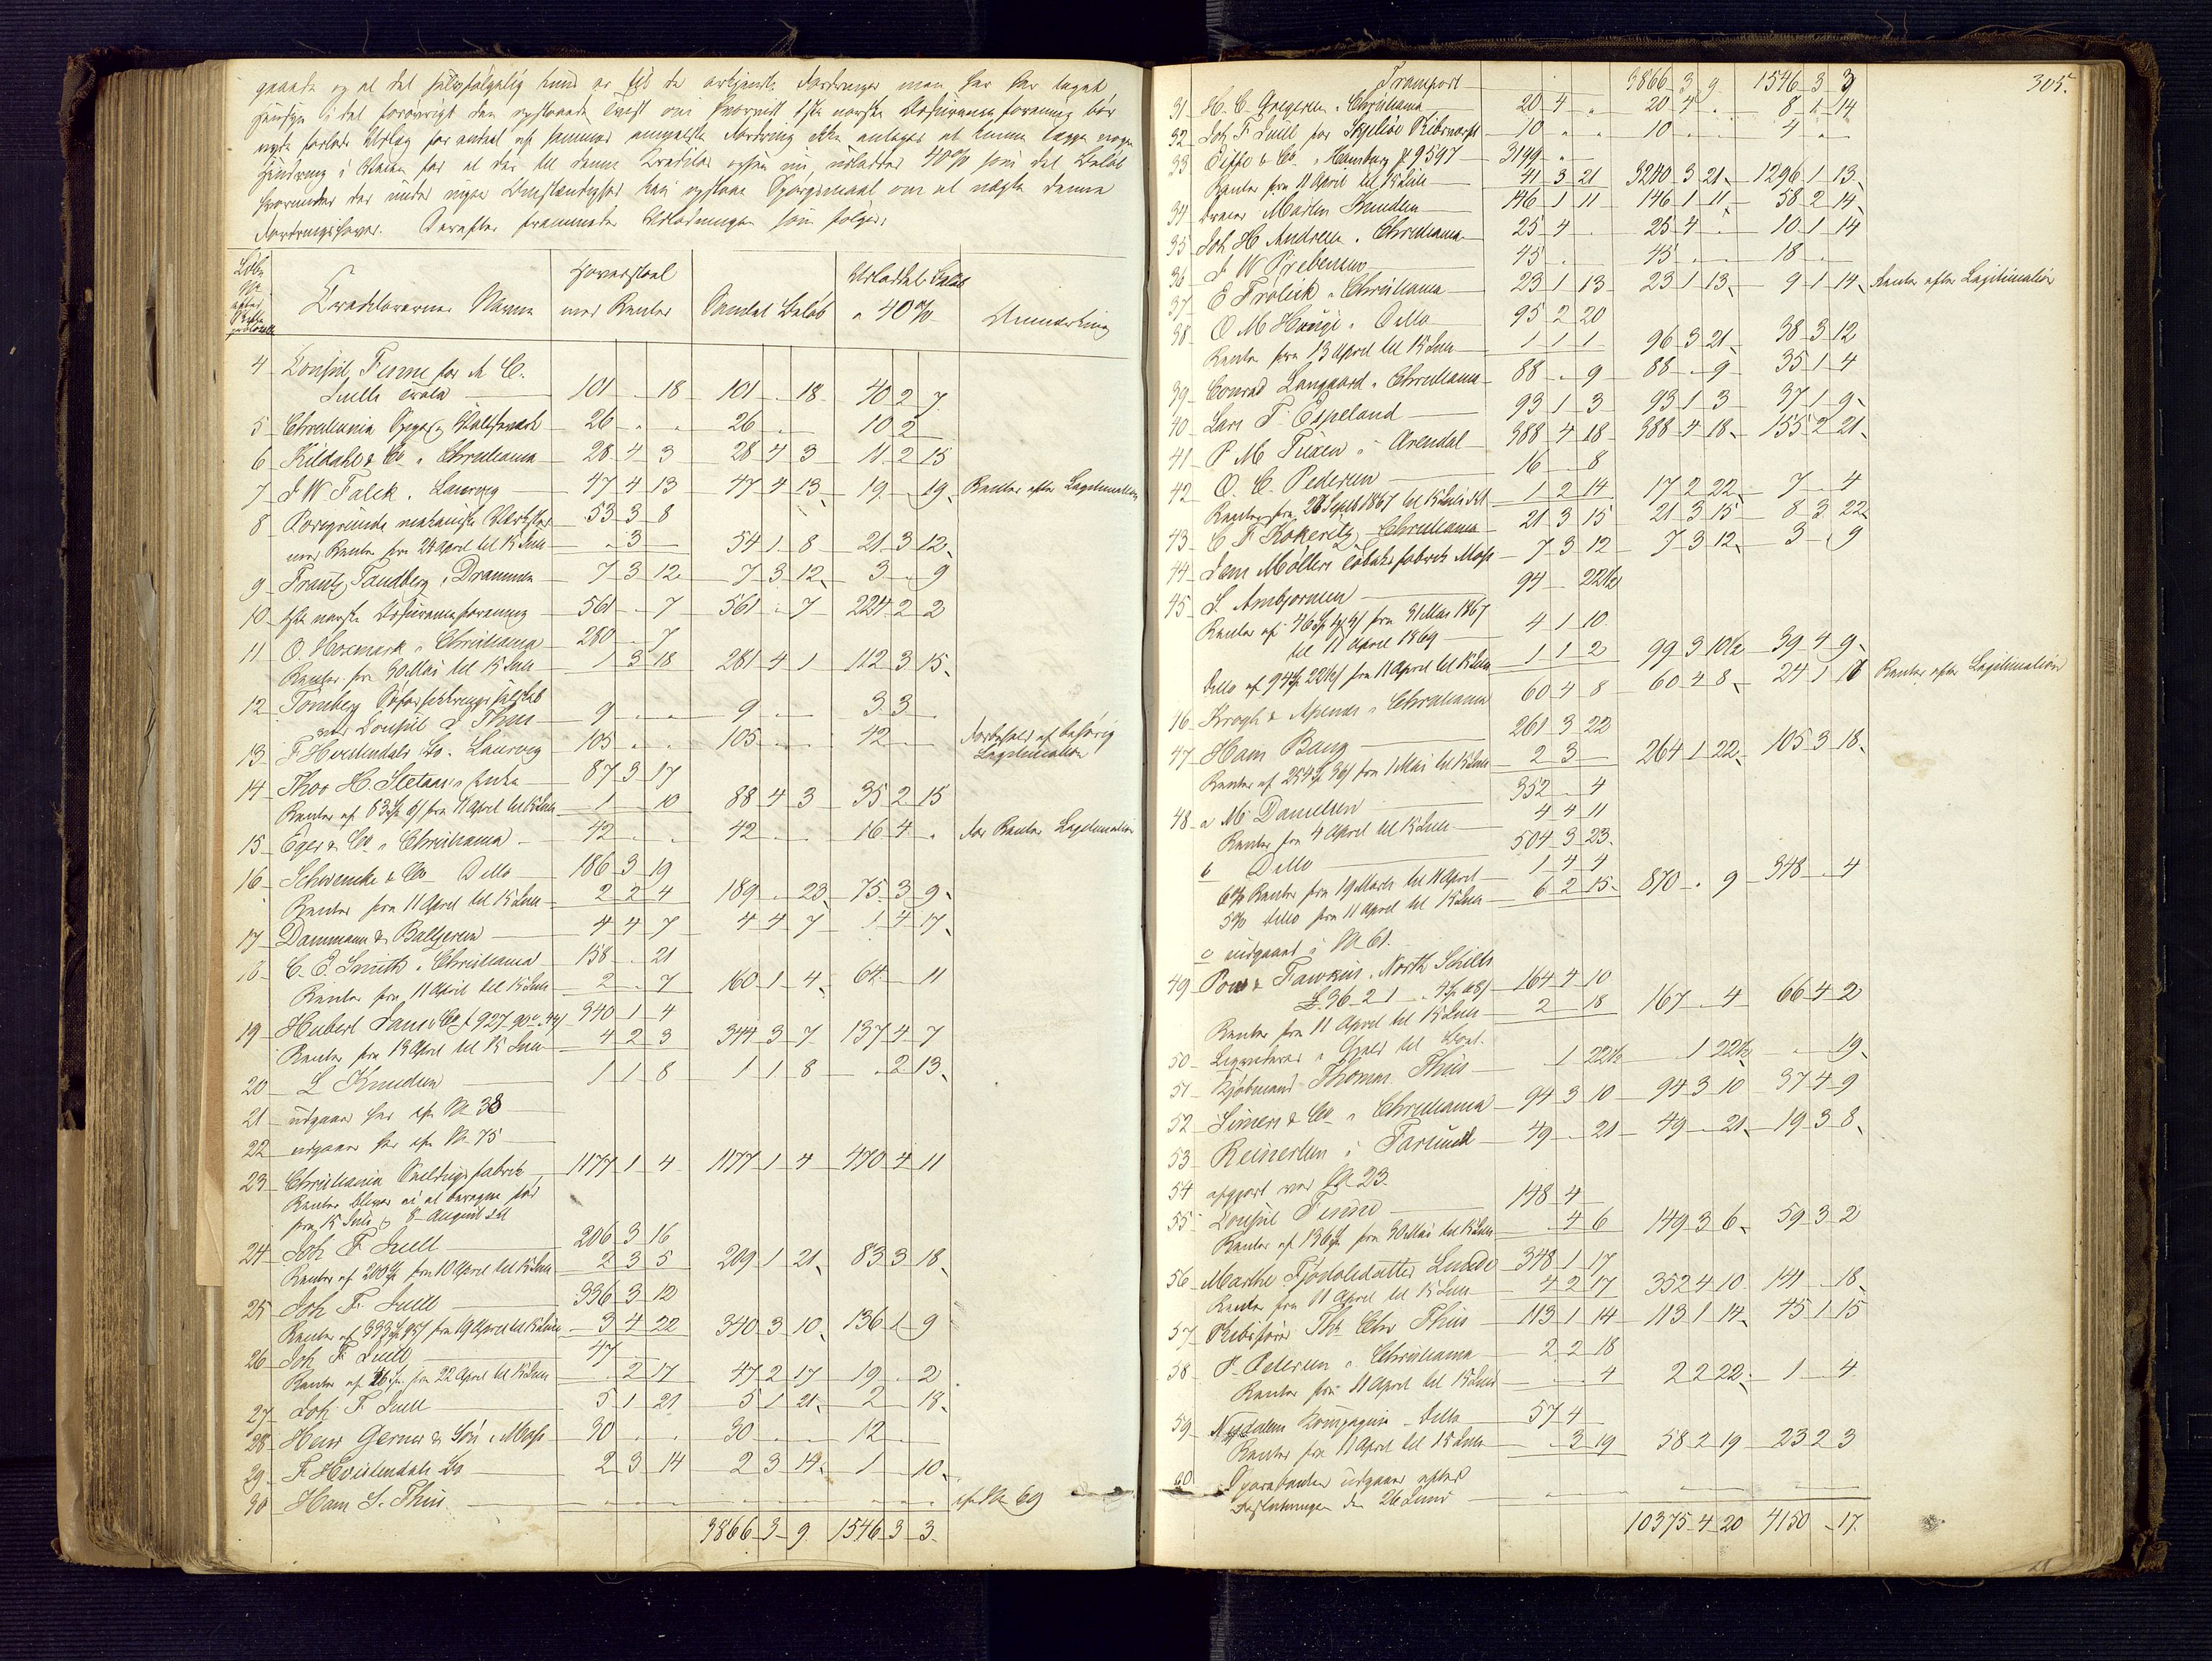 og at det selvfølgelig kun er til de erkjendte Fordringer man har her taget
Hensyn i det forøvrigt den opstaaede Tvist om hvorvidt 1ste norske Assuranceforening bør
nyde forlods Udlæg for endeel af sammes anmeldte Fordring ikke antages at kunne lægge nogen
Hindring i Veien for at der til denne Kreditor ogsaa nu udlodder 40% som det Beløb
hvorunder der under ingen Omstændighed kan opstaae Spørgsmaal om at nægte denne
Fordringshaver. Derefter fremmedes Udlodningen som følger:
Løbe No efter Skifteprotocollen
Kreditorernes Navne
Hovedstol med Renter
Samlet Beløb
Udloddet Beløb a 40%
Anmærkning
4 Consul Fenne for N C. Juells Enke 101 . 18 101 . 18 40 2 7
5 Christiania Spiger & Valseværk 26 . . 26 . . 10 2
6 Kildahl & Co i Christiania 28 4 3 28 4 3 11 2 15
7 J W Falck i Laurvig 47 4 13 47 4 13 19 . 19 Renter efter Legitimation
8 Porsgrunds mekaniske Værksted 53 3 8
med Renter fra 24 April til 15 Juli . 3 54 1 8 21 3 12
9 Frantz Tandberg i Drammen 7 3 12 7 3 12 3 . 9
10 1ste norske Assuranceforening 561 . 7 561 . 7 224 2 2
11 O. Hormark i Christiania 280 . 7
Renter fra 30 Mai til 15 Juli 1 3 18 281 4 1 112 3 15
12 Tønsberg Søforsikringsselskab
ved Consul L Thiis 9 . . 9 . . 3 3
13 F Hvistendals Bo i Laurvig 105 . . 105 . . 42 . . Forbehold af behørig Legitimation
14 Thor H Stetaas's Enke 87 3 17
Renter af 83 Sp 6 s fra 11 April til 15 Juli 1 . 10 88 4 3 35 2 15
15 Eger & Co i Christiania 42 . . 42 . . 16 4 . For Renter Legitimation
16 Schwencke & Co Ditto 186 3 19
Renter fra 11 April til 15 Juli 2 2 4 189 . 23 75 3 9
17 Dammann & Baltzersen 4 4 7 4 4 7 1 4 17
18 C. E. Smith i Christiania 158 . 21
Renter fra 11 April til 15 Juli 2 . 7 160 1 4 64 . 11
19 Hubert Jans & Co 340 1 4
Renter fra 13 April til 15 Juli 4 2 3 344 3 7 137 4 7
20 L Knudsen 1 1 8 1 1 8 . 2 13
21 udgaaer her cfr No 38
22 udgaaer her cfr No 75
23 Christiania Fabrik 1177 1 4 1177 1 4 470 4 11
Renter bliver ei at beregne for
fra 15 Juli 8 August
24 Joh. F. Juell 206 3 16
Renter af 200 Sp fra 10 April til 15 Juli 2 3 5 209 1 21 83 3 18
25 Joh F. Juell 336 3 12
Renter af fra 19 April til 15 Juli 3 4 22 340 3 10 136 1 9
26 Joh F Juell 47
Renter af 46 Sp fra 22 April til 15 Juli . 2 17 47 2 17 19 . 2
27 Joh. F. Juell 5 1 21 5 1 21 2 . 18
28 Heur Gerner & Søn i Moss 30 . . 30 . . 12 . .
29 F. Hvistendals Bo 2 3 14 2 3 14 1 . 10
30 Ham S. Thiis cfr No 69
3866 3 9 1546 3 3
305.
Transport 3866 3 9 1546 3 3
31 H. C. Gregersen i Christiania 20 4 . 20 4 . 8 1 14
32 Joh F Juell for 10 . . 10 . . 4 . .
33 & Co i Hamburg 9597 3199 . .
Renter fra 11 April til 15 Juli 41 3 21 3240 3 21 1296 1 13
34 Dreier Martin Knudsen 146 1 11 146 1 11 58 2 14
35 Joh H Andresen i Christiania 25 4 . 25 4 . 10 1 14
36 J W Prebensen 45 . . 45 . . 18 . .
37 E Frølich i Christiania 23 1 13 23 1 13 9 1 14 Renter efter Legitimation
38 O M Hauge i Ditto 95 2 20
Renter fra 13 April til 15 Juli 1 1 1 96 3 21 38 3 12
39 Conrad Langaard i Christiania 88 . 9 88 . 9 35 1 4
40 Lars T. Espeland 93 1 3 93 1 3 37 1 9
41 P M Tuxen i Arendal 388 4 18 388 4 18 155 2 21
42 O. C. Pedersen 16 . 8
Renter fra 28 Septb 1867 til 15 Juli d. A. 1 2 14 17 2 22 7 . 4
43 C F Kokeritz Christiania 21 3 15 21 3 15 8 3 22
44 Jens Møllers Tobaksfabrik Moss 7 3 12 7 3 12 3 . 9
45 L Ambjørnsen 94 . 22½
Renter af 76 Sp fra 31 Mai 1867
til 11 April 1869 4 1 10
Ditto af 94 Sp 22½ s fra 11 April til 15 Juli 1 1 2 99 3 10½ 39 4 9
46 Krogh & Apenes i Christiania 60 4 8 60 4 8 24 1 18 Renter efter Legitimation
47 Hans Bang 261 3 22
Renter af 254 Sp 36 s fra 1 Mai til 15 Juli 2 3 264 1 22 105 3 18
48 a M Danielsen 352 . 4
Renter fra 4 April til 15 Juli 4 4 11
b Ditto 504 3 23
6% Renter fra 19 Marts til 11 April 1 4 4
5% ditto fra 11 April til 15 Juli 6 2 15 870 . 9 348 . 4
c udgaaet i No 61.
49 Pow & Fawcus i North Schields
£ 36 2 1 164 4 10
Renter fra 11 April til 15 Juli 2 . 18 167 . 4 66 4 2
50 i Gjæld til
51 Kjøbmand Thomas Thiis . 1 22½ . 1 22½ . . 19
52 Simers & Co i Christiania 94 3 10 94 3 10 37 4 9
53 Reinertsen i Farsund 49 . 21 49 . 21 19 3 8
54 afgjort ved No 23.
55 Consul Fenne 148 4
Renter af 136 Sp fra 30 Mai til 15 Juli . 4 6 149 3 6 59 3 2
56 Marthe Tjødolsdatter Lunde 348 1 17
Renter fra 11 April til 15 Juli 4 2 17 352 4 10 141 . 18
57 Skibsfører Thiis 113 1 14 113 1 14 45 1 15
58 P. Pedersen i Christiania 2 2 18
Renter fra 11 April til 15 Juli . . 4 2 2 22 1 . 4
59 Nydalens Kompagnie Ditto 57 4
Renter fra 11 April til 15 Juli . 3 19 58 2 19 23 2 3
60 Sparebanken udgaaer efter
Beslutningen den 26 Juni
10375 4 20 4150 . 17